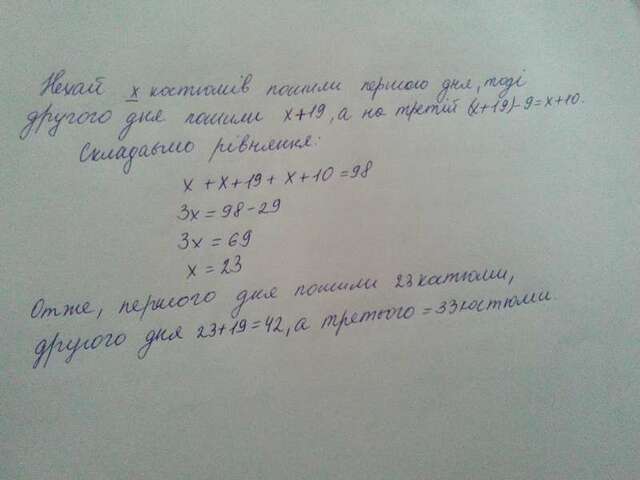 Нехай x костюмів пошили першого дня, тоді
другого дня пошили x+19, а на третій (x+19)-9=x+10.
Складаємо рівняння:
x+x+19+x+10=98
3x=98-29
3x=69
x=23
Отже, першого дня пошили 23 катюми,
другого дня 23+19=42, а третього =33 костюми.